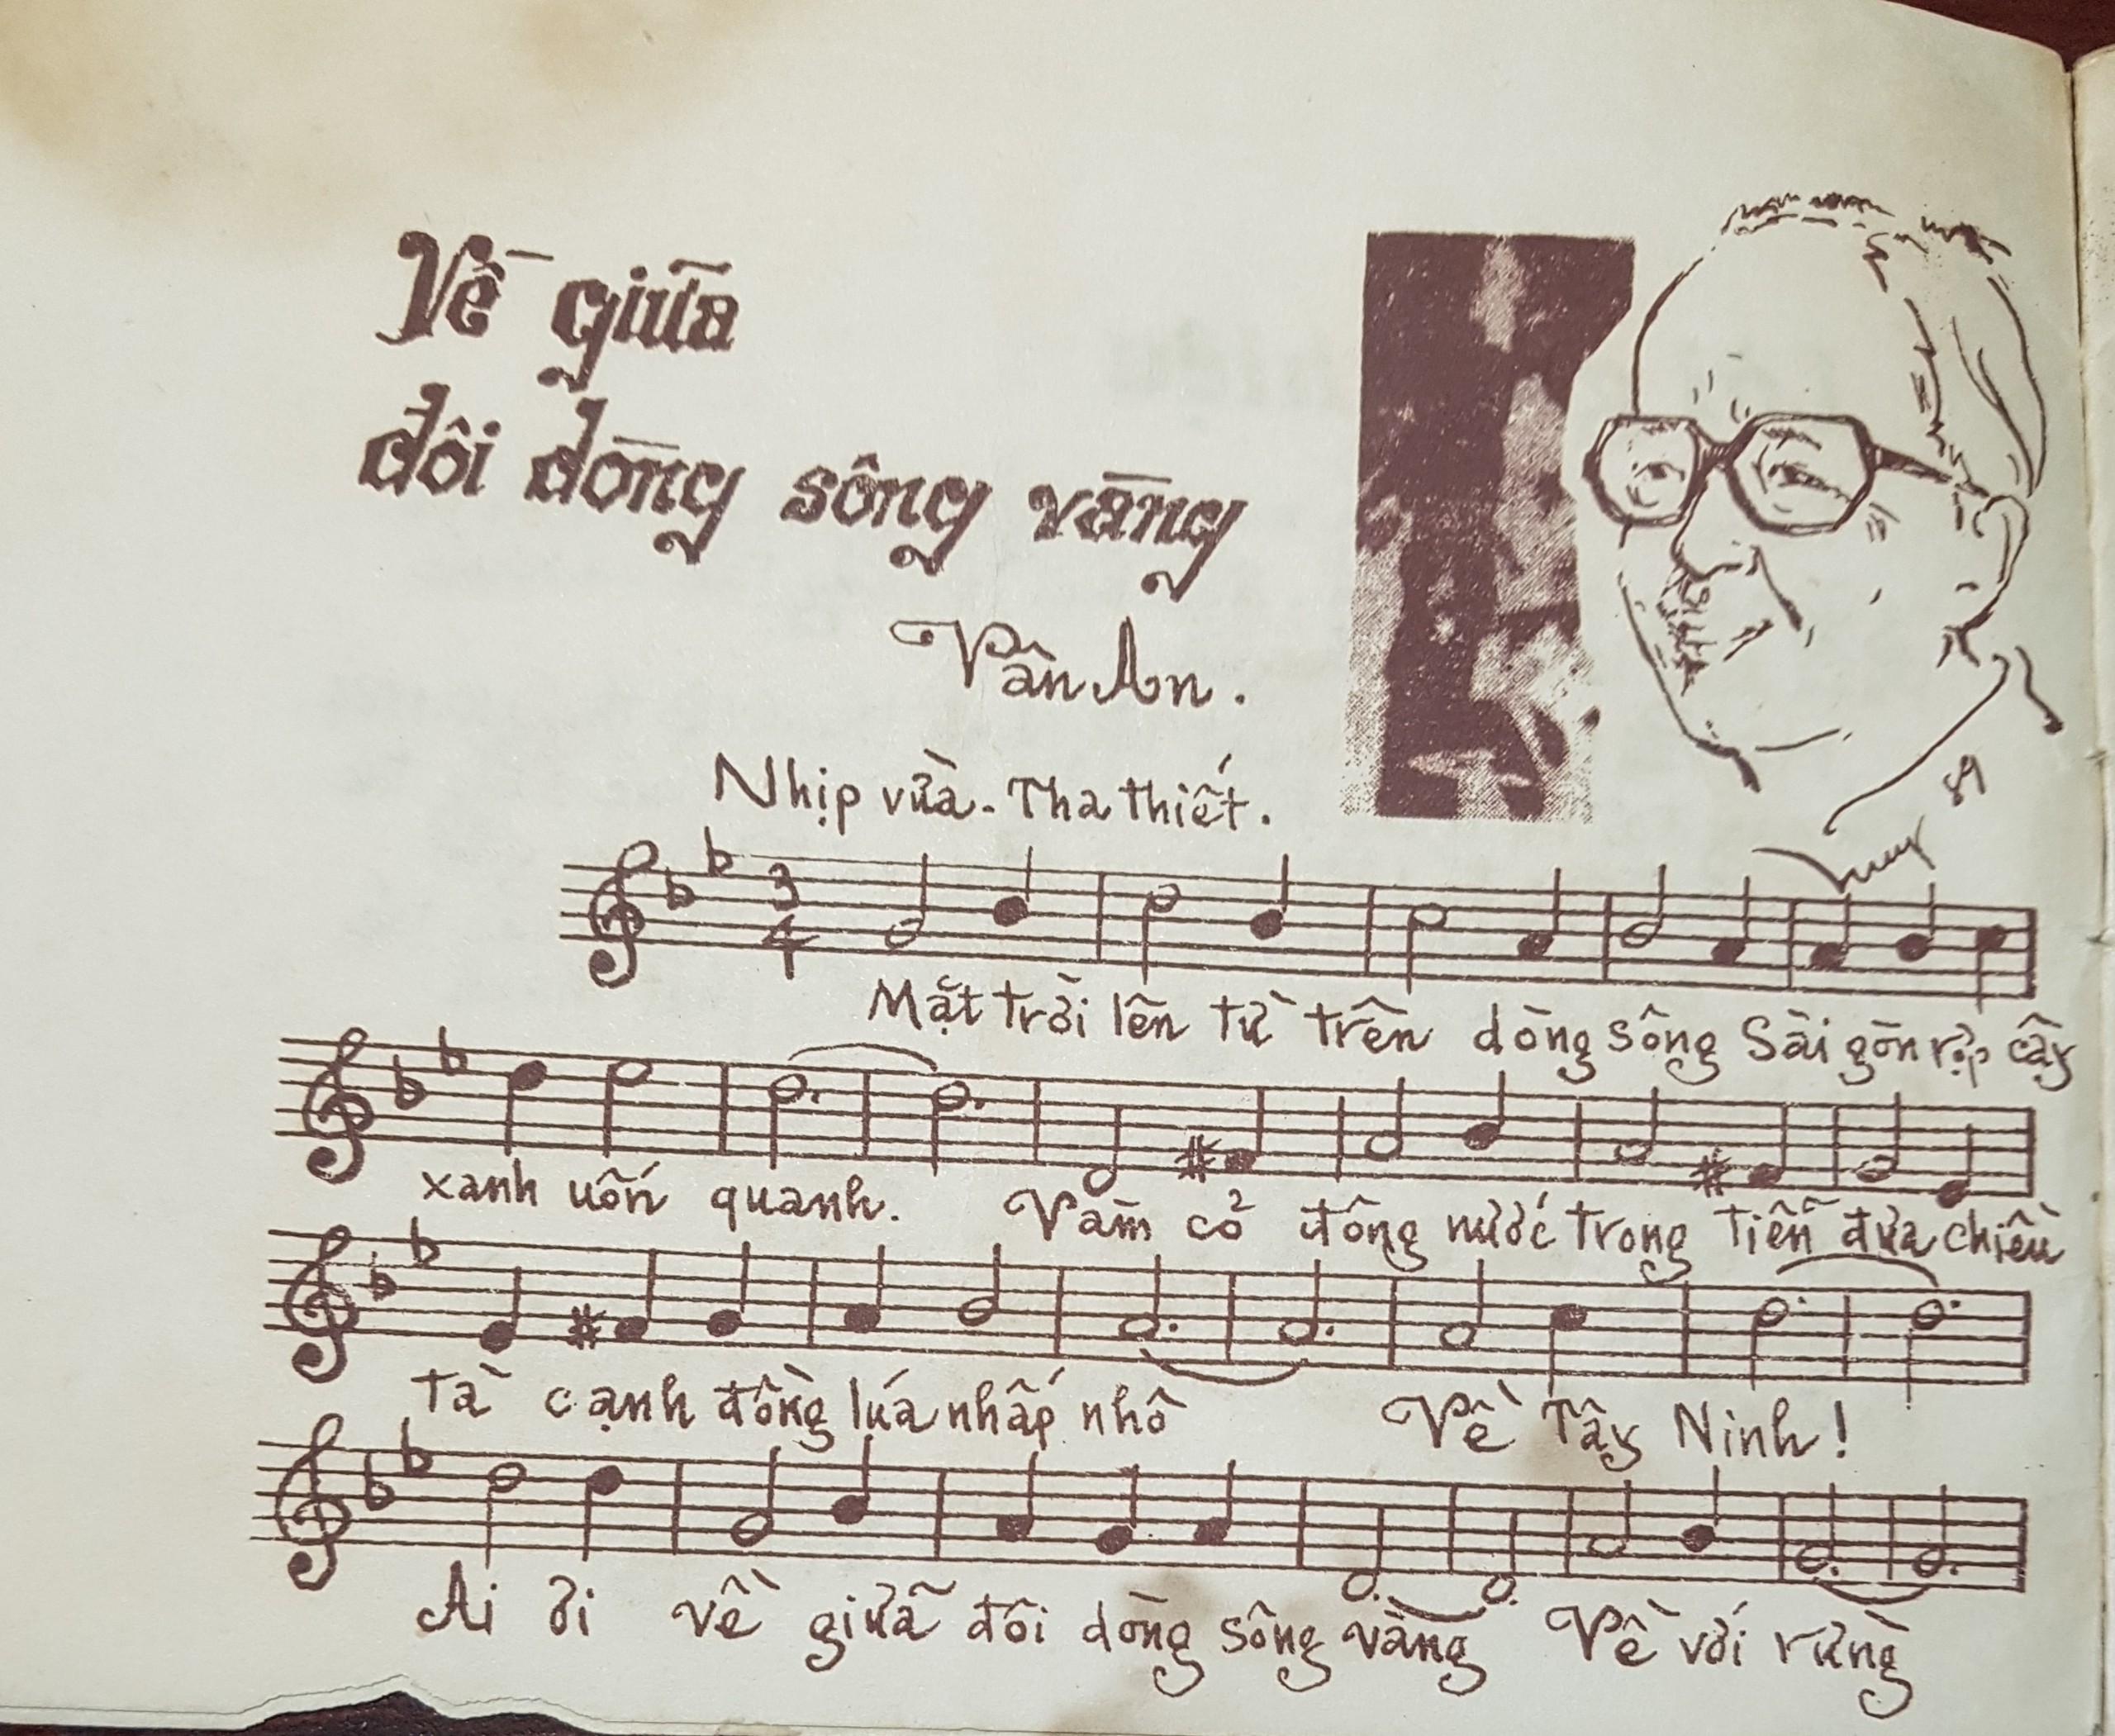 Về giữa
đôi dòng sông vàng
Vân An.
Nhịp vừa - Tha thiết.
89
3
4
Mặt trời lên từ trên dòng sông Sài gòn rợp cây
xanh uốn quanh. Vàm cỏ đông nước trong tiễn đưa chiều
tà cạnh đồng lúa nhấp nhô Về Tây Ninh!
Ai ơi về giữa đôi dòng sông vàng Về với rừng